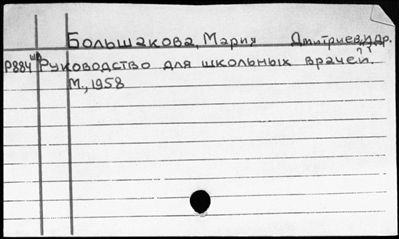 Большакова, Мария Дмитриев. и др.
Р884 Руководство для школьных врачей.
М., 1958